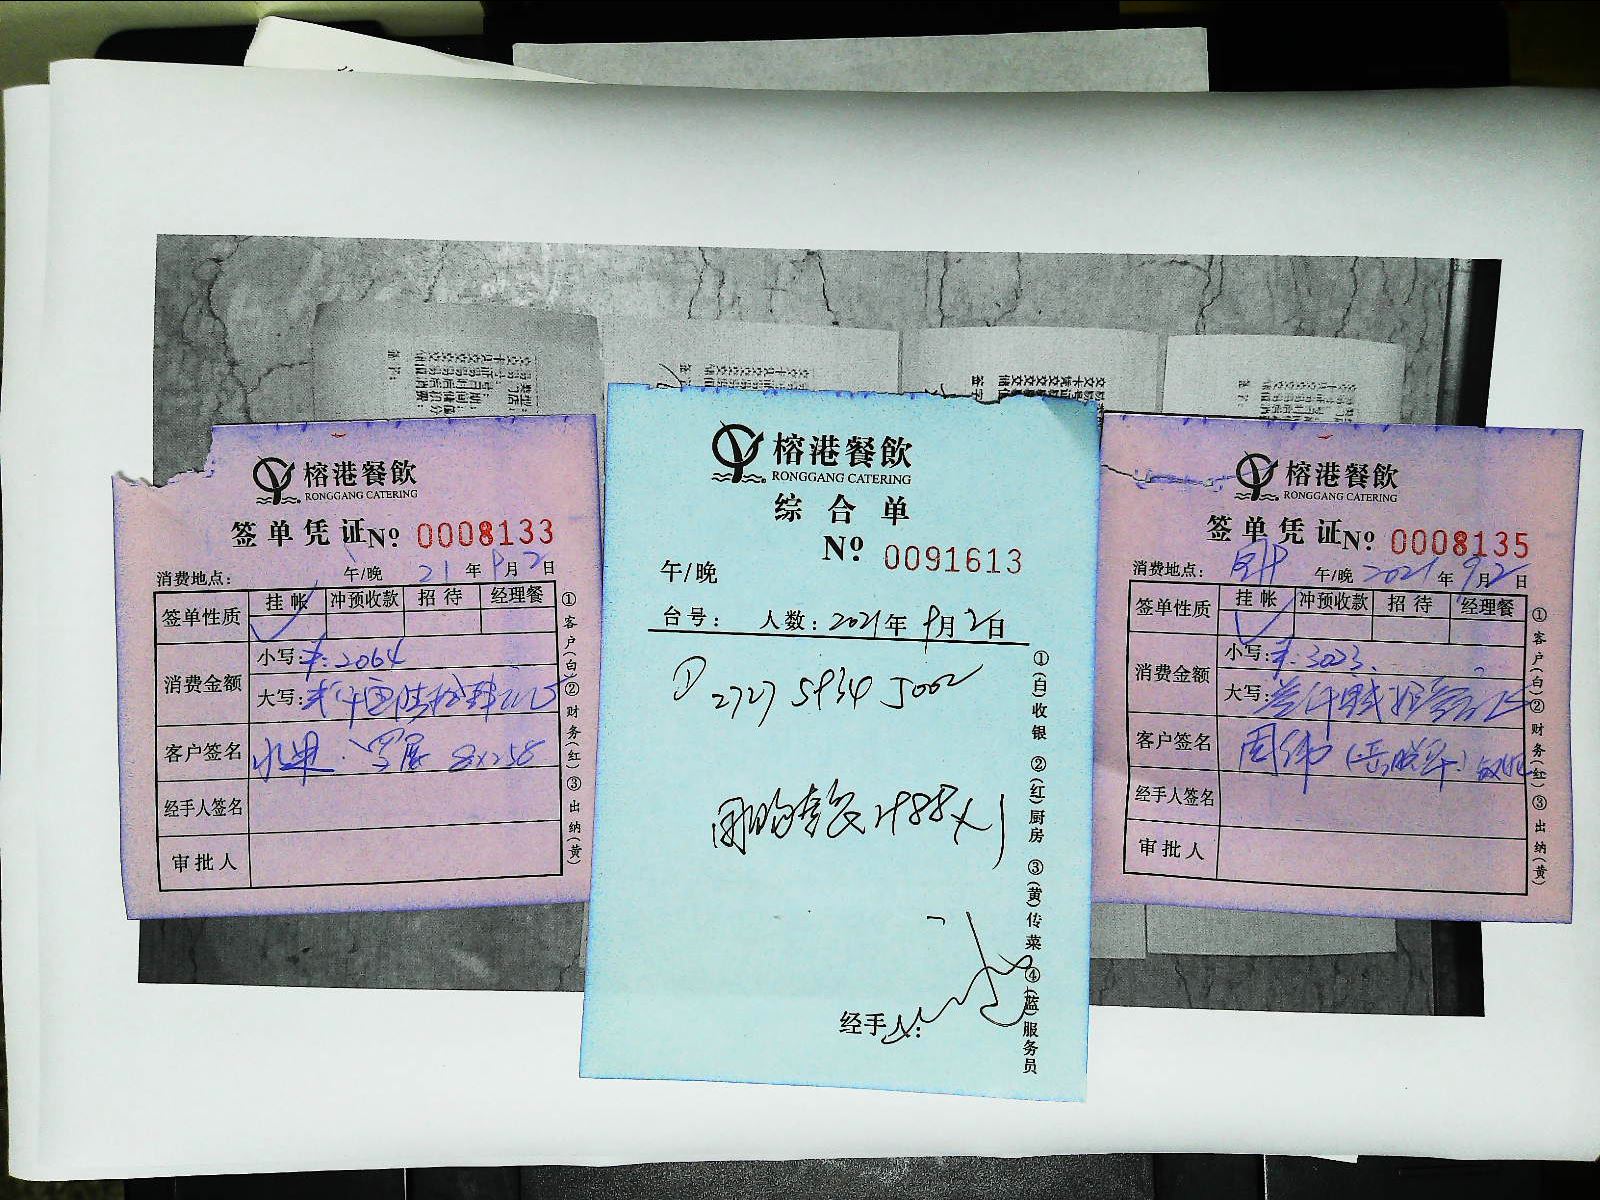 榕港餐飲
RONGGANG CATERING
签单凭证 № 0008133
消费地点: 午/晚 21年9月2日
签单性质 挂帐 冲预收款 招待 经理餐
消费金额 小写:¥:2064
大写:贰仟零陆拾肆元
客户签名 水果 8×258
经手人签名
审批人
①客户(白)②财务(红)③出纳(黄)
榕港餐飲
RONGGANG CATERING
综合单
№ 0091613
午/晚
台号: 人数: 2021年9月2日
① 2727 5934 5002
经手人:
①(白)收银 ②(红)厨房 ③(黄)传菜 ④(蓝)服务员
榕港餐飲
RONGGANG CATERING
签单凭证 № 0008135
消费地点: 午/晚 2021年9月2日
签单性质 挂帐 冲预收款 招待 经理餐
消费金额 小写:¥:3023.
大写:
客户签名 周伟
经手人签名
审批人
①客户(白)②财务(红)③出纳(黄)